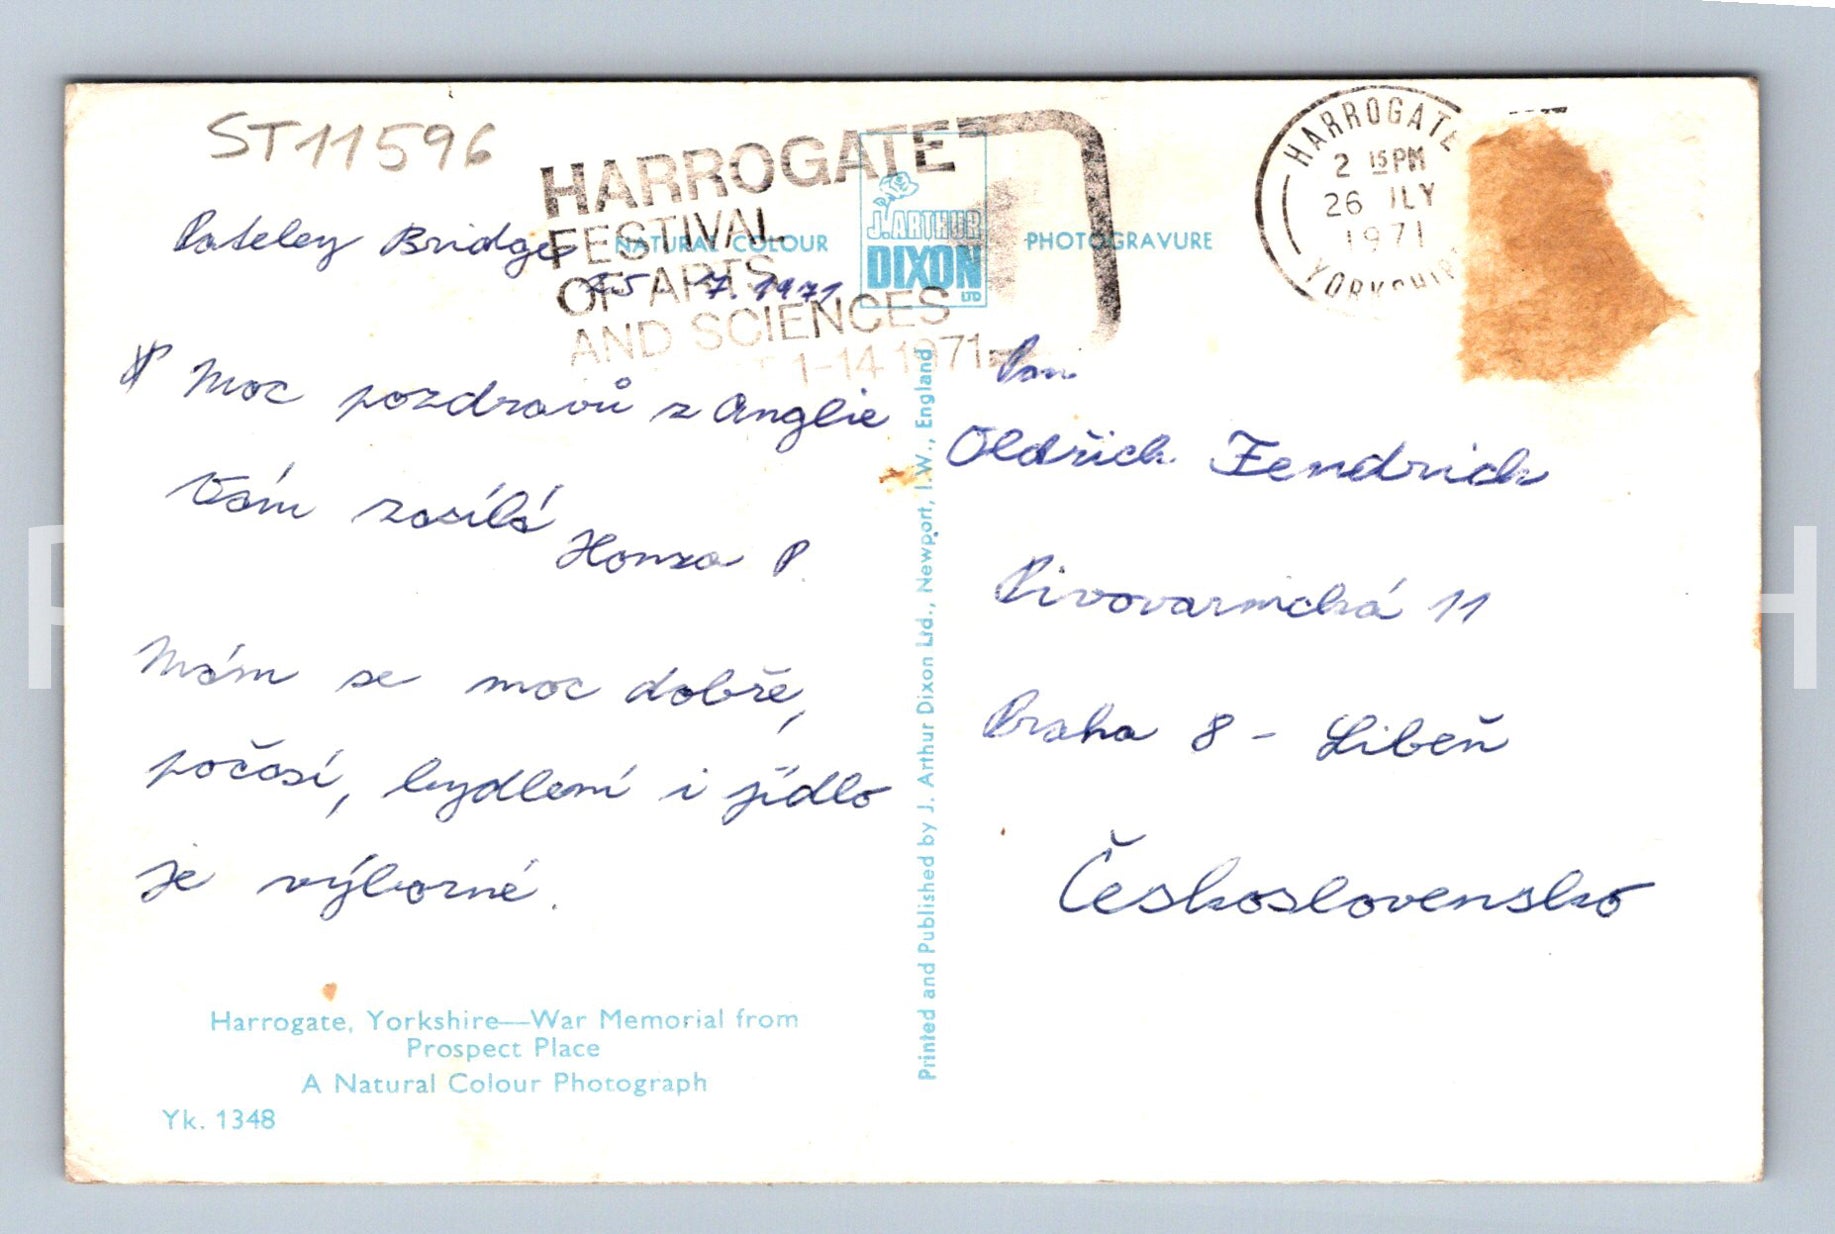 ST11596
HARROGATE
FESTIVAL
OF ARTS
AND SCIENCES
1-14 1971
HARROGATE
2 15 PM
26 JLY
1971
YORKSHIRE
NATURAL COLOUR
J. ARTHUR
DIXON
LTD
PHOTOGRAVURE
Pateley Bridge
25 7. 1971
Moc pozdravů z Anglie
Vám zasílá
Honza P.
Mám se moc dobře,
počasí, bydlení i jídlo
je výborné.
Harrogate, Yorkshire—War Memorial from
Prospect Place
A Natural Colour Photograph
Yk. 1348
Printed and Published by J. Arthur Dixon Ltd., Newport, I.W., England
Pan
Oldřich Fendrich
Pivovarnická 11
Praha 8 - Libeň
Československo